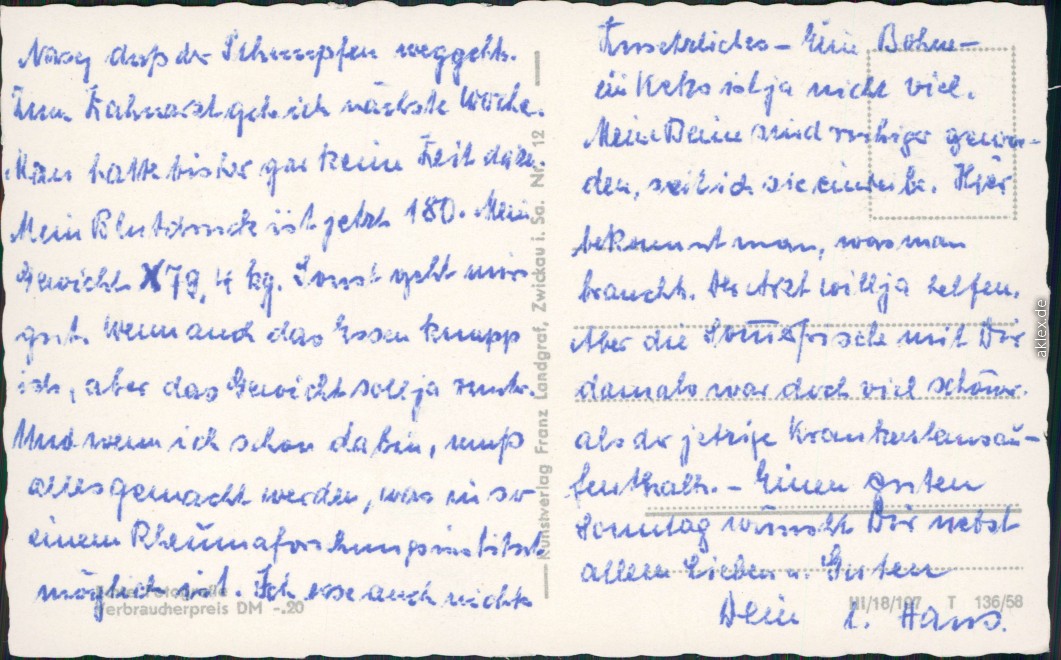 daß der Schnupfen weggeht.
Zum Zahnarzt geh ich nächste Woche.
Man hatte bisher gar keine Zeit dazu.
Mein Blutdruck ist jetzt 180. Mein
Gewicht 79,4 kg. Sonst geht mirs
gut. Wenn auch das Essen knapp
ist, aber das Gewicht soll ja runter.
Und wenn ich schon da bin, muß
alles gemacht werden, was in so
einem Rheumaforschungsinstitut
möglich ist. Ich esse auch nichts
Verbraucherpreis DM -.20
Kunstverlag Franz Landgraf, Zwickau i. Sa. Nr. 12
Zusätzliches - Eine Bohne -
ein Keks ist ja nicht viel.
Meine Beine sind ruhiger gewor-
den, seit ich sie einreibe. Hier
bekommt man, was man
braucht. Der Arzt will ja helfen.
Aber die Sommerfrische mit Dir
damals war doch viel schöner
als der jetzige Krankenhausau-
fenthalt. - Einen guten
Sonntag wünscht Dir nebst
allem Lieben u. Guten
Dein l. Hans.
III/18/107 T 136/58
aklex.de